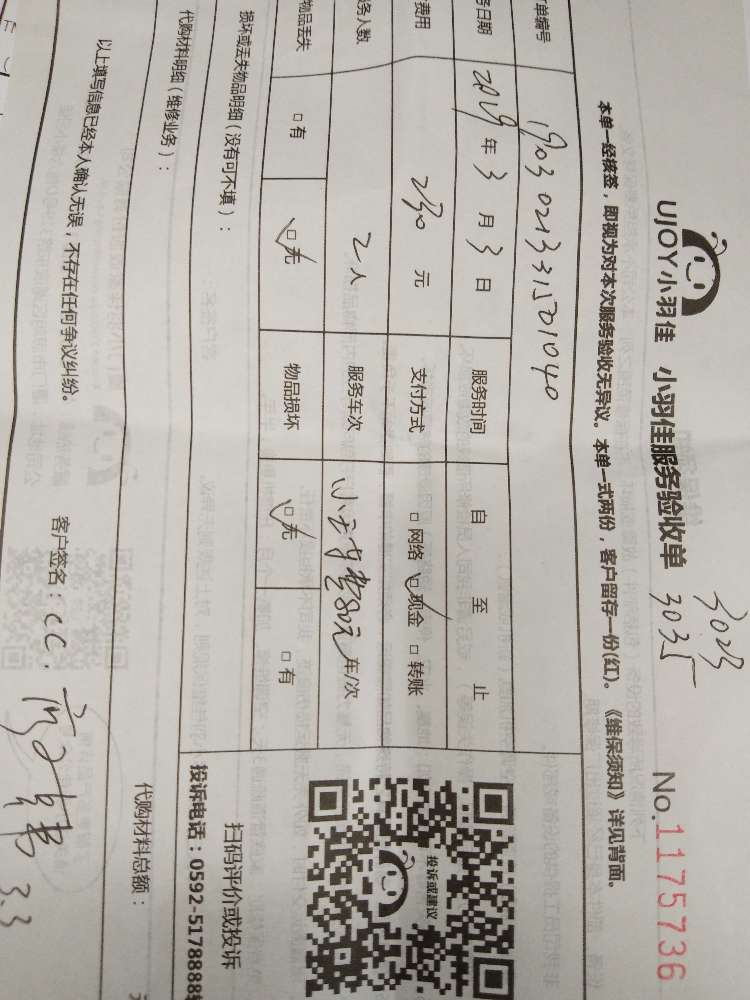 UJOY小羽佳 小羽佳服务验收单
3023
3035
No.1175736
本单一经核签，即视为对本次服务验收无异议。本单一式两份，客户留存一份(红)。《维保须知》详见背面。
单编号 1903021331501040
务日期 2019年3月3日 服务时间 自 至 止
费用 230元 支付方式 □网络 ☑现金 □转账
务人数 2人 服务车次 80元车/次
物品丢失 □有 ☑无 物品损坏 ☑无 □有
损坏或丢失物品明细（没有可不填）：
代购材料明细（维修业务）：
代购材料总额：
以上填写信息已经本人确认无误，不存在任何争议纠纷。
客户签名：CC.
3.3
投诉或建议
扫码评价或投诉
投诉电话：0592-5178888